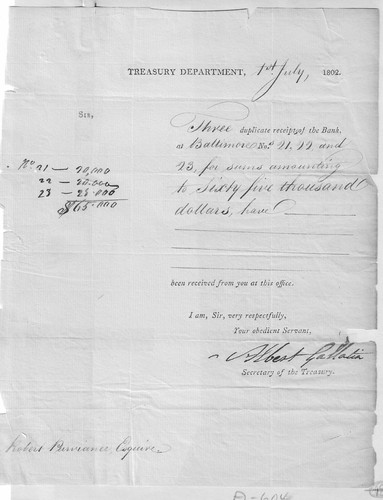 TREASURY DEPARTMENT, 1st July, 1802.
SIR,
Three duplicate receipts of the Bank,
at Baltimore Nos. 21, 22 and
23, for sums amounting
to Sixty five thousand
dollars, have
No. 21 — 20,000
22 — 20.000
23 — 25.000
$65.000
been received from you at this office.
I am, Sir, very respectfully,
Your obedient Servant,
Albert Gallatin
Secretary of the Treasury.
Robert Purviance Esquire